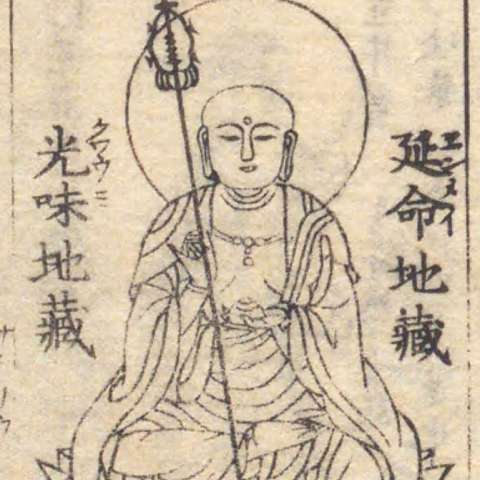 延命地蔵
エンメイ
光味地蔵
クワウミ